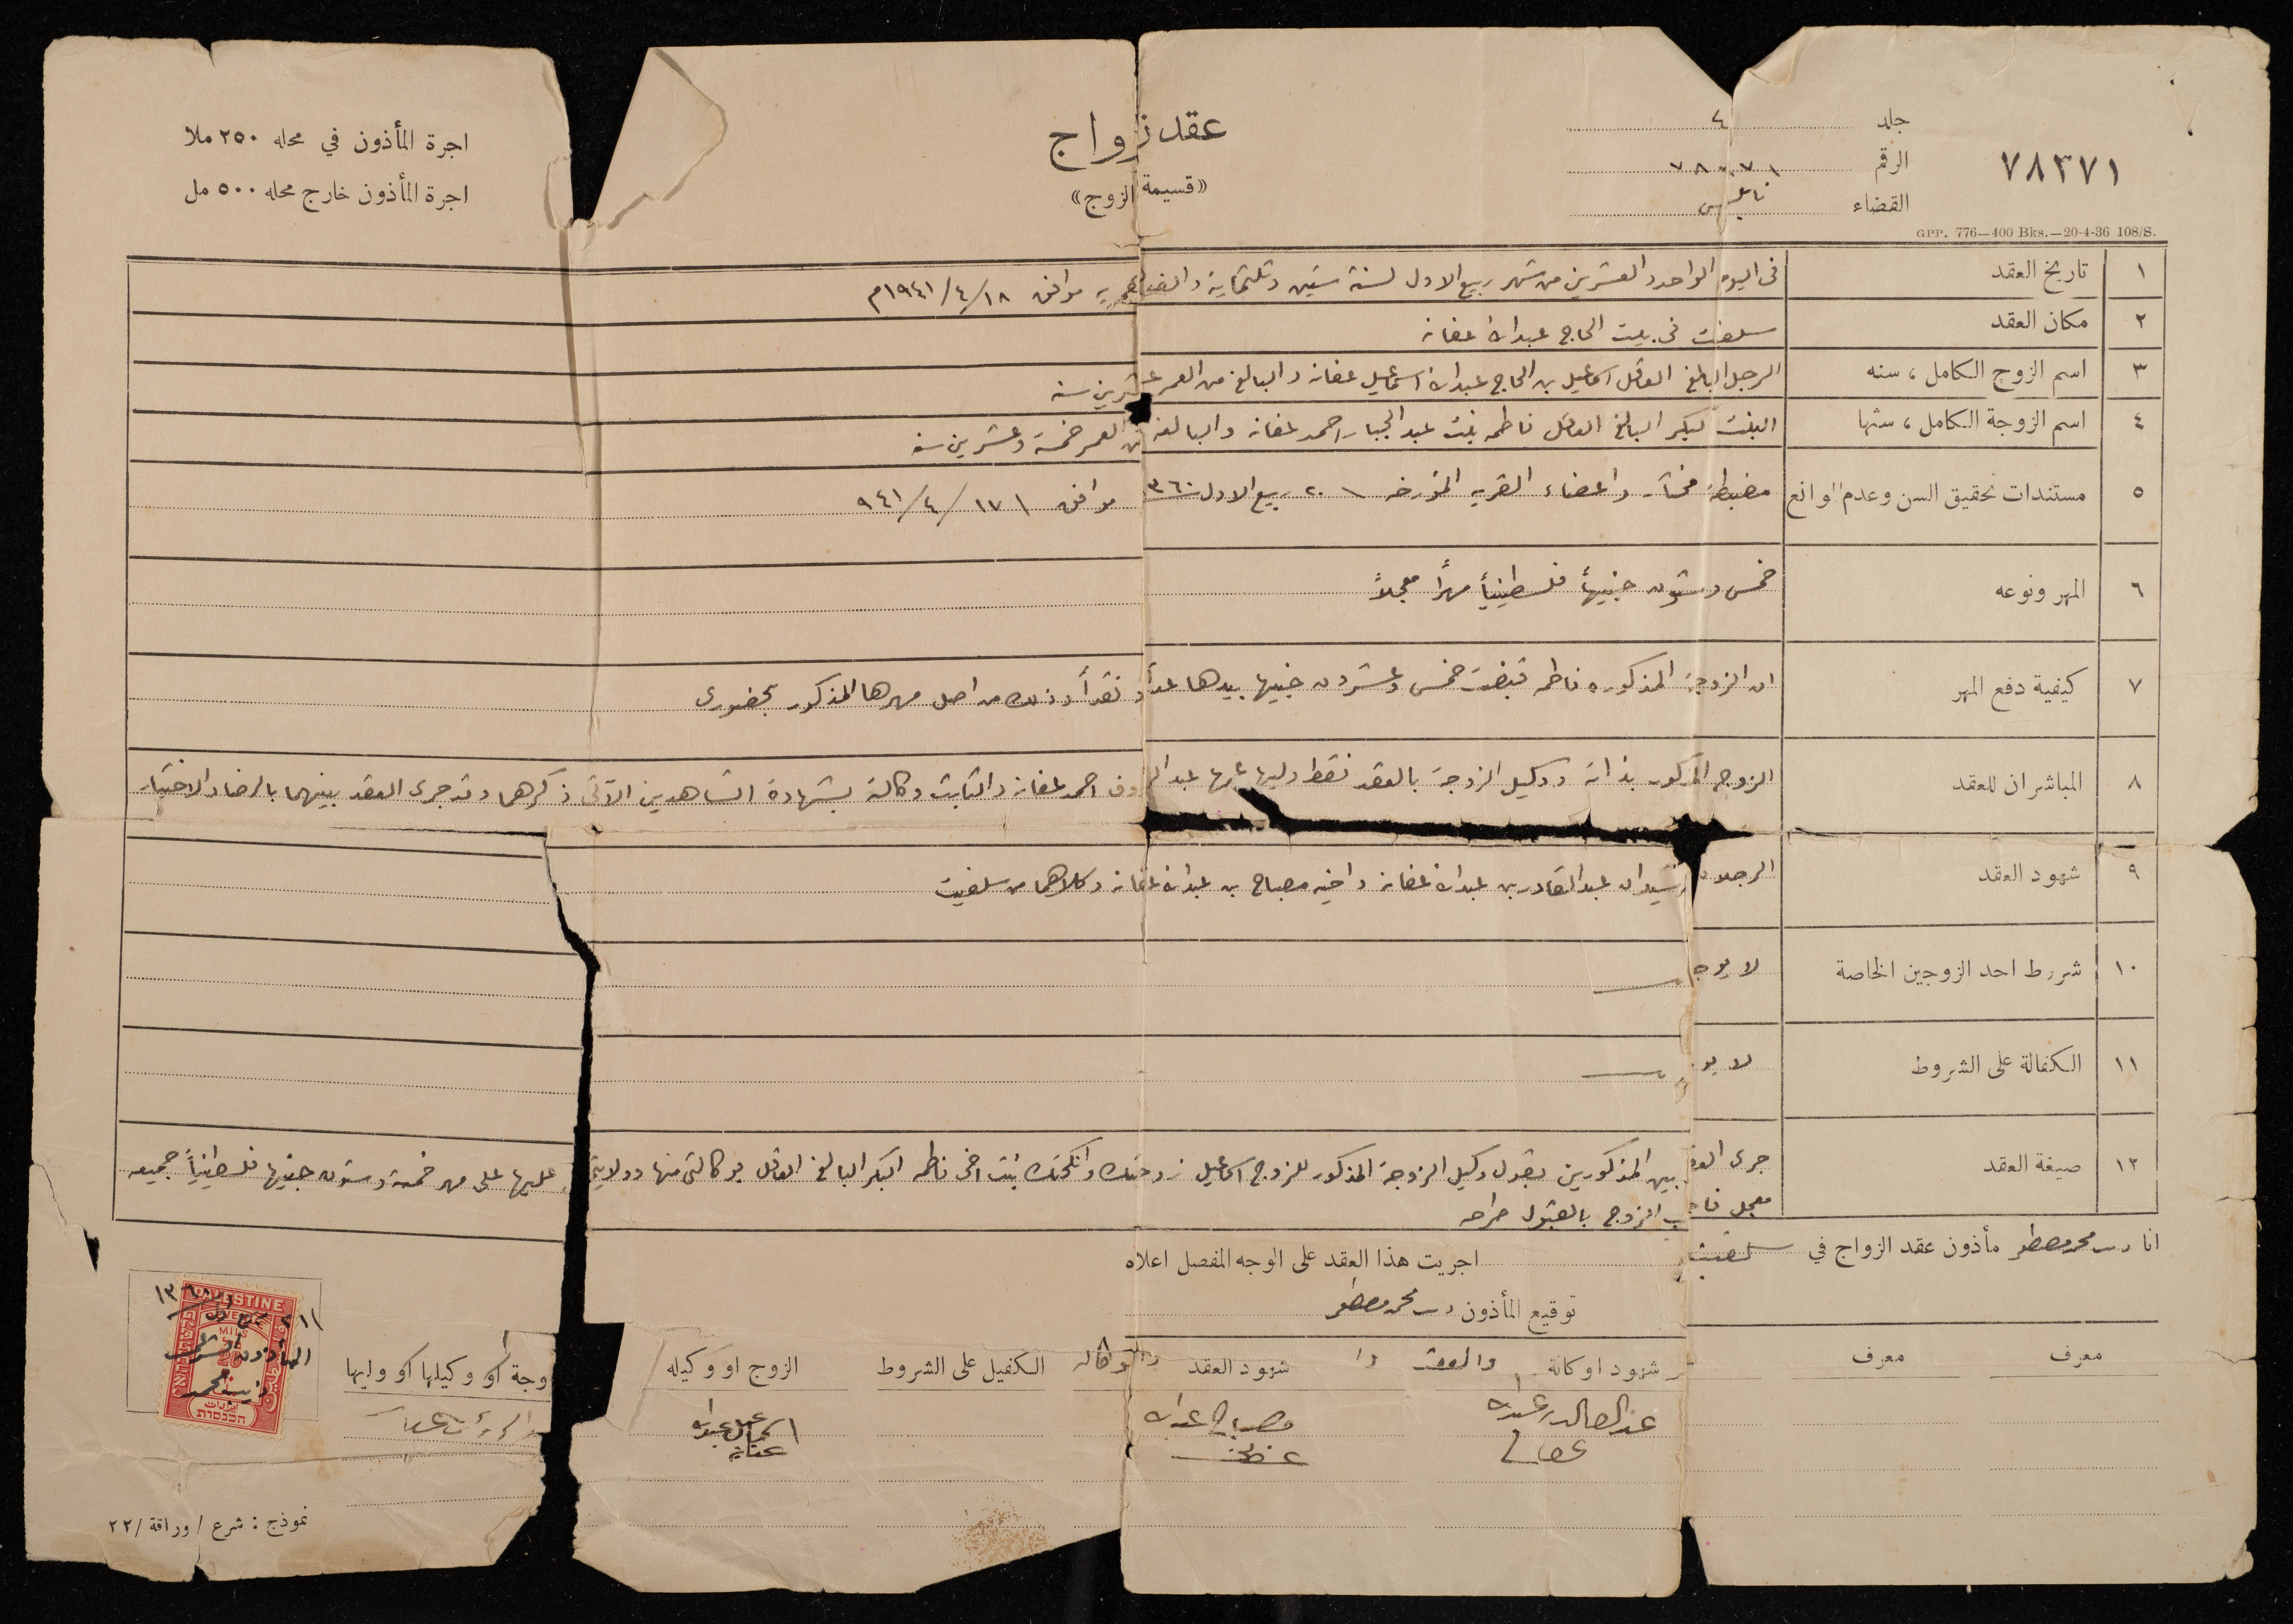 ٧٨٣٧١
جلد ٤
الرقم ٧٨٠٧١
القضاء نابلس
GPP. 776—400 Bks.—20-4-36 108/S.
عقد زواج
«قسيمة الزوج»
اجرة المأذون في محله ٢٥٠ ملا
اجرة المأذون خارج محله ٥٠٠ مل
١ تاريخ العقد في اليوم الواحد والعشرين من شهر ربيع الاول لسنة ستين وثلثماية والف هجريه موافق ١٨/٤/١٩٤١م
٢ مكان العقد سلفيت في بيت الحاج عبدالله عفانه
٣ اسم الزوج الكامل ، سنه الرجل البالغ العاقل اسماعيل بن الحاج عبدالله اسماعيل عفانه والبالغ من العمر عشرين سنه
٤ اسم الزوجة الكامل ، سنها البنت البكر البالغ العاقل فاطمه بنت عبد الجبار احمد عفانه والبالغه من العمر خمسة وعشرين سنه
٥ مستندات تحقيق السن وعدم الموانع مضبطة مختار واعضاء القريه المؤرخه ٢٠ ربيع الاول ٣٦٠ موافق ١٧/٤/٩٤١
٦ المهر ونوعه خمس وستون جنيهاً فلسطينياً مهراً معجلاً
٧ كيفية دفع المهر ان الزوجة المذكوره فاطمه قبضت خمس وعشرون جنيها بيدها عداً ونقداً وذلك من اصل مهرها المذكور بحضوري
٨ المباشران للعقد الزوج المذكور بذاته ووكيل الزوجة بالعقد فقط وليها عمها عبد الرؤوف احمد عفانه والثابت وكالته بشهادة الشاهدين الآتي ذكرهما وقد جرى العقد بينهما بالرضا والاختيار
٩ شهود العقد الرجلان الرشيدان عبدالقادر بن عبدالله عفانه واخيه مصباح بن عبدالله عفانه وكلاهما من سلفيت
١٠ شروط احد الزوجين الخاصة لا يوجد
١١ الكفالة على الشروط لا يوجد
١٢ صيغة العقد جرى العقد بين المذكورين بقول وكيل الزوجة المذكور للزوج اسماعيل زوجتك وانكحتك بنت اخي فاطمه البكر البالغ العاقل بوكالتي منها وولايتي عليها على مهر خمسة وستون جنيها فلسطينياً جميعه
معجل فاجاب الزوج بالقبول صراحه
انا محمد مصطفى مأذون عقد الزواج في سلفيت اجريت هذا العقد على الوجه المفصل اعلاه
توقيع المأذون محمد مصطفى
معرف معرف شهود الوكالة والعقد شهود العقد والوكاله الكفيل على الشروط الزوج او وكيله الزوجة او وكيلها او وليها
عبدالقادر عبدالله عفانه
مصباح عبدالله عفانه
اسماعيل عبدالله عفانه
PALESTINE
MILS
הכנסות
نموذج : شرع / وراقة / ٢٢